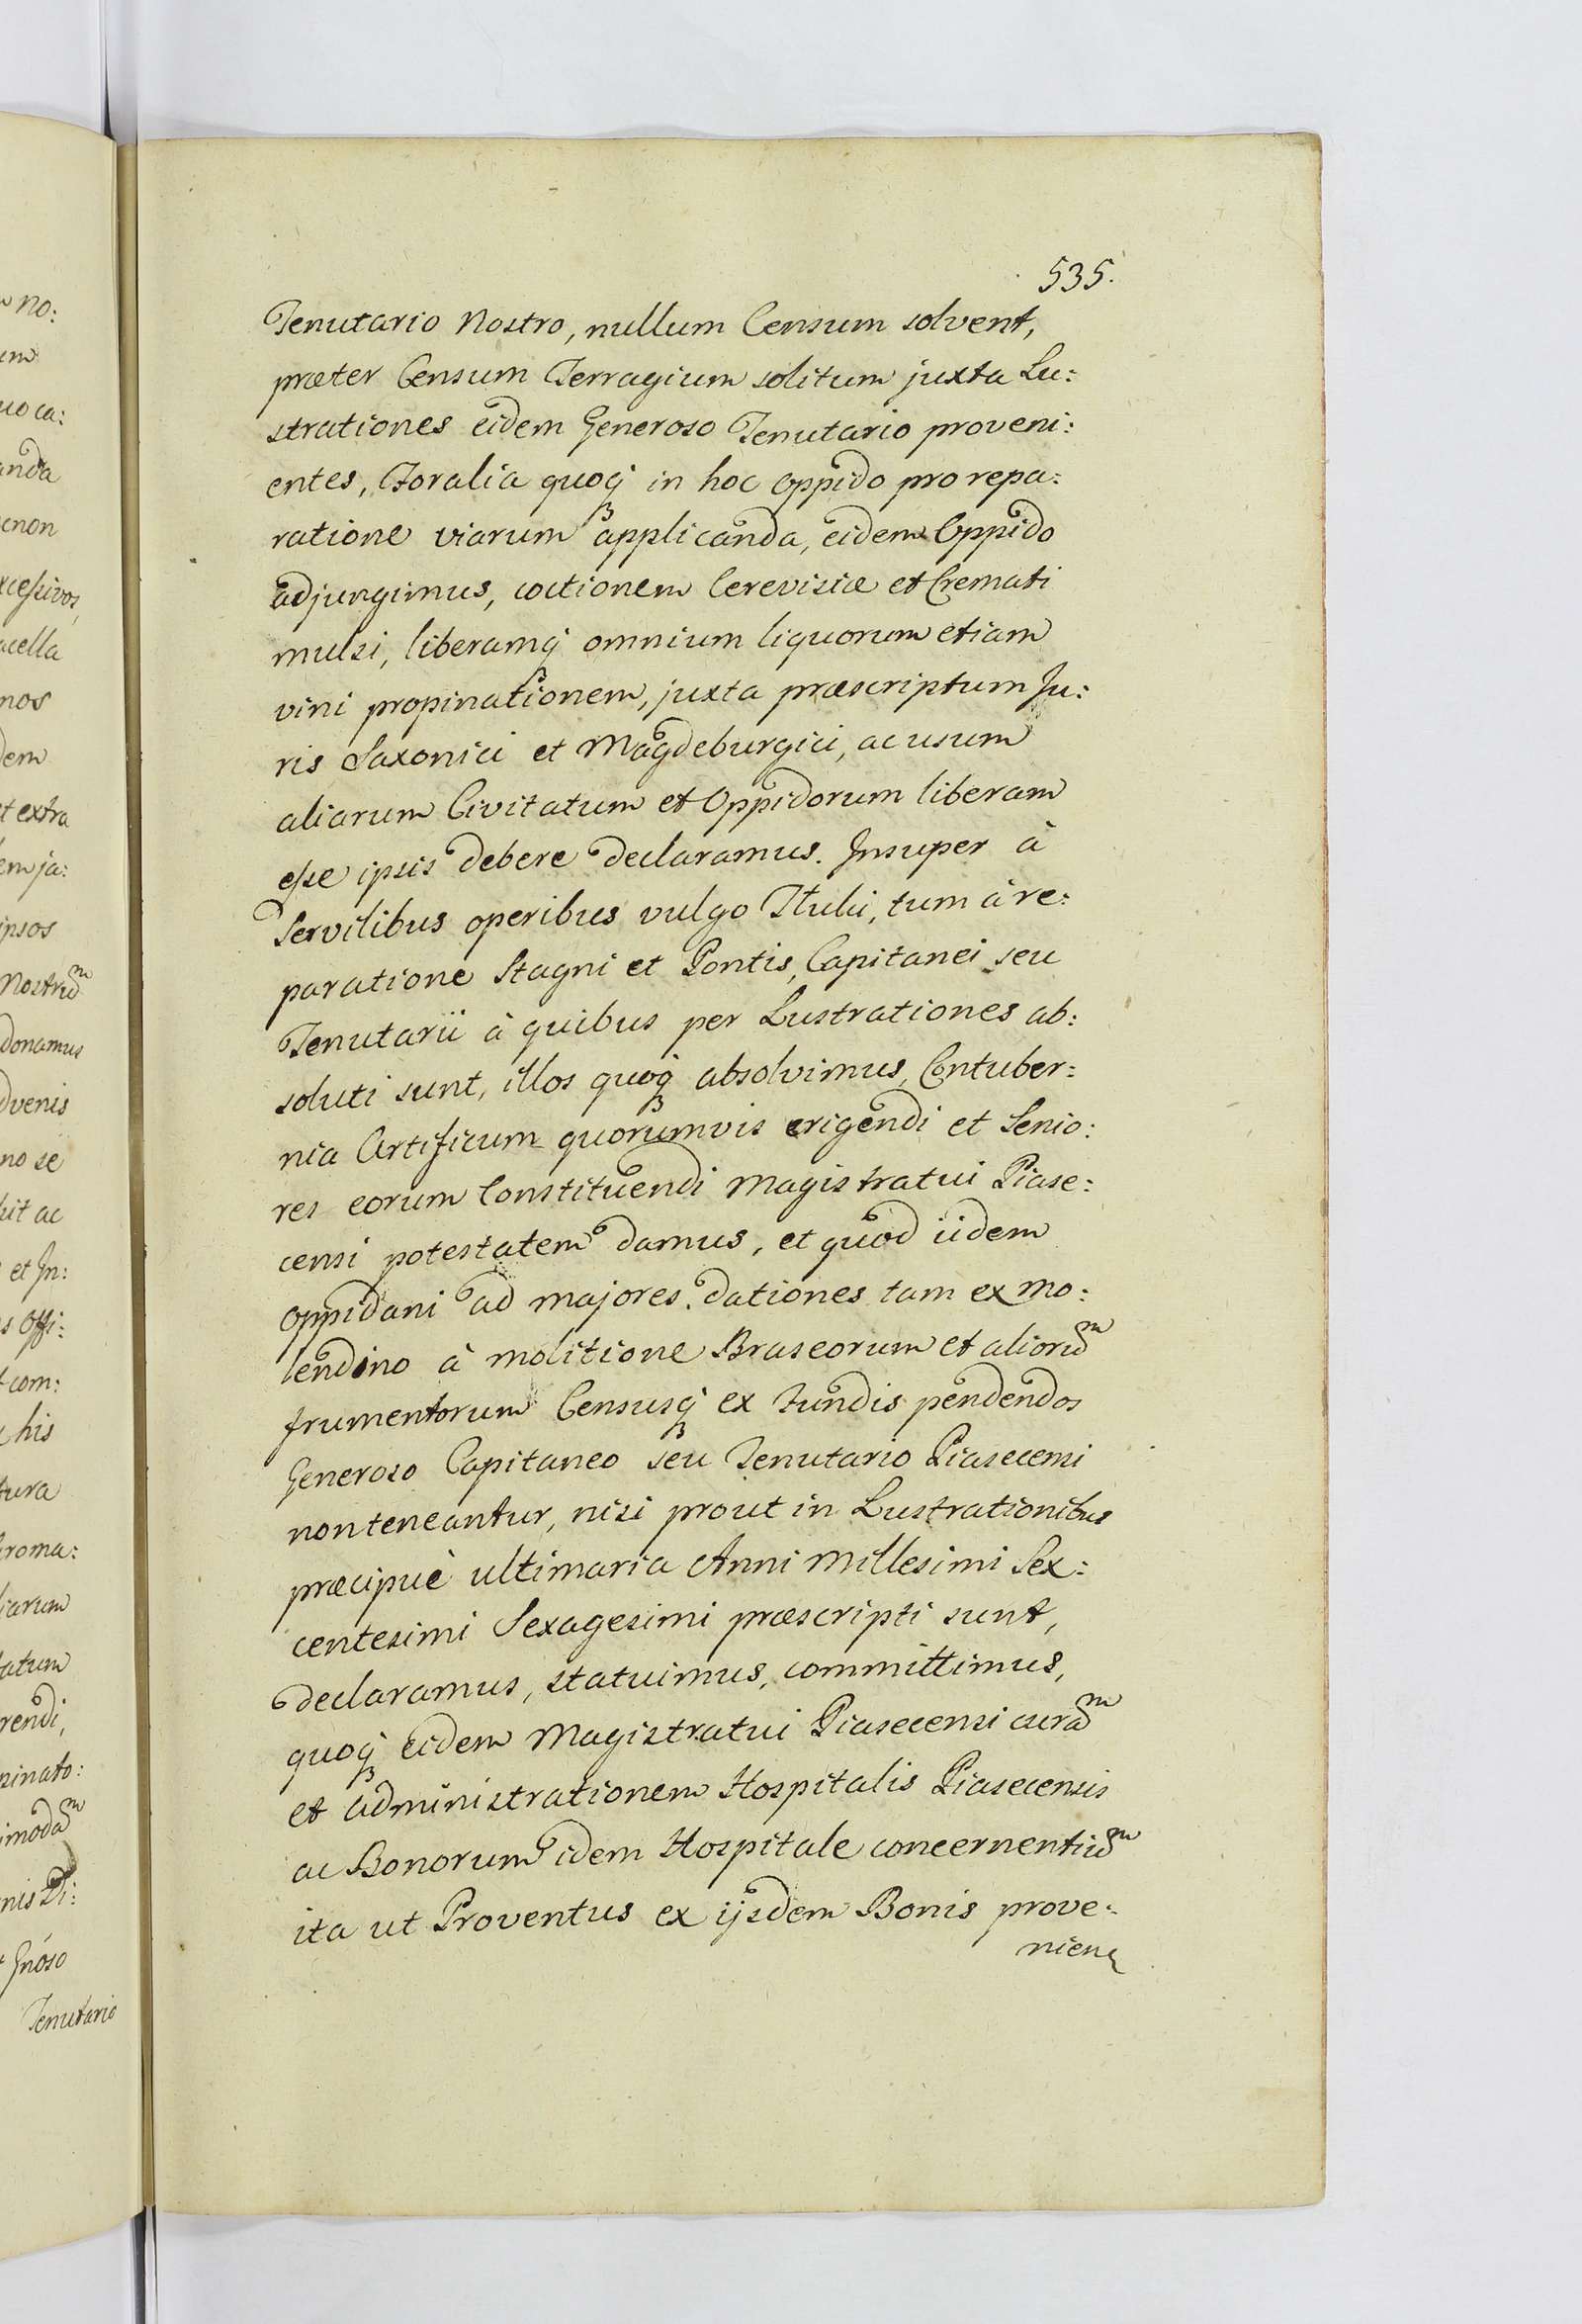 535.
Tenutario Nostro, nullum Censum solvent,
præter Censum Terragium solitum juxta Lu:
strationes eidem Generoso Tenutario proveni:
entes, Foralia quoq3 in hoc Oppido pro repa:
ratione viarum applicanda, eidem Oppido
adjungimus, coctionem Cerevisiæ et Cremati
mulsi, liberamq3 omnium liquorum etiam
vini propinationem, juxta præscriptum Ju:
ris Saxonici et Magdeburgici, ac usum
aliarum Civitatum et Oppidorum liberam
esse ipsis debere declaramus. Insuper à
Servilibus operibus vulgo Tłuki, tum à re:
paratione Stagni et Pontis, Capitanei seu
Tenutarii à quibus per Lustrationes ab:
soluti sunt, illos quoq3 absolvimus, Contuber:
nia Artificum quorumvis erigendi et Senio:
res eorum Constituendi Magistratui Piase:
censi potestatem damus, et quod iidem
Oppidani ad majores dationes tam ex mo:
lendino à molitione Braseorum et alioru͠m
frumentorum Censusq3 ex fundis pendendos
Generoso Capitaneo seu Tenutario Piasecensi
non teneantur, nisi prout in Lustrationibus
præcipuè ultimaria Anni Millesimi Sex:
centesimi Sexagesimi præscripti sunt,
declaramus, statuimus, committimus,
quoq3 eidem Magistratui Piasecensi cura͠m
et administrationem Hospitalis Piasecensis
ac Bonorum idem Hospitale concernentiu͠m
ita ut Proventus ex ijsdem Bonis prove:
nien
no:
uo ca:
anda
cnon
xcessivos,
acella
nos
dem
et extra
em ja:
ipsos
Nostru͠m
donamus
dvenis
no se
uit ac
et In:
s Offi:
com:
his
tura
roma:
iarum
tatum
rendi,
pinato:
imoda͠m
nis Di:
Gnóso
Tenutario